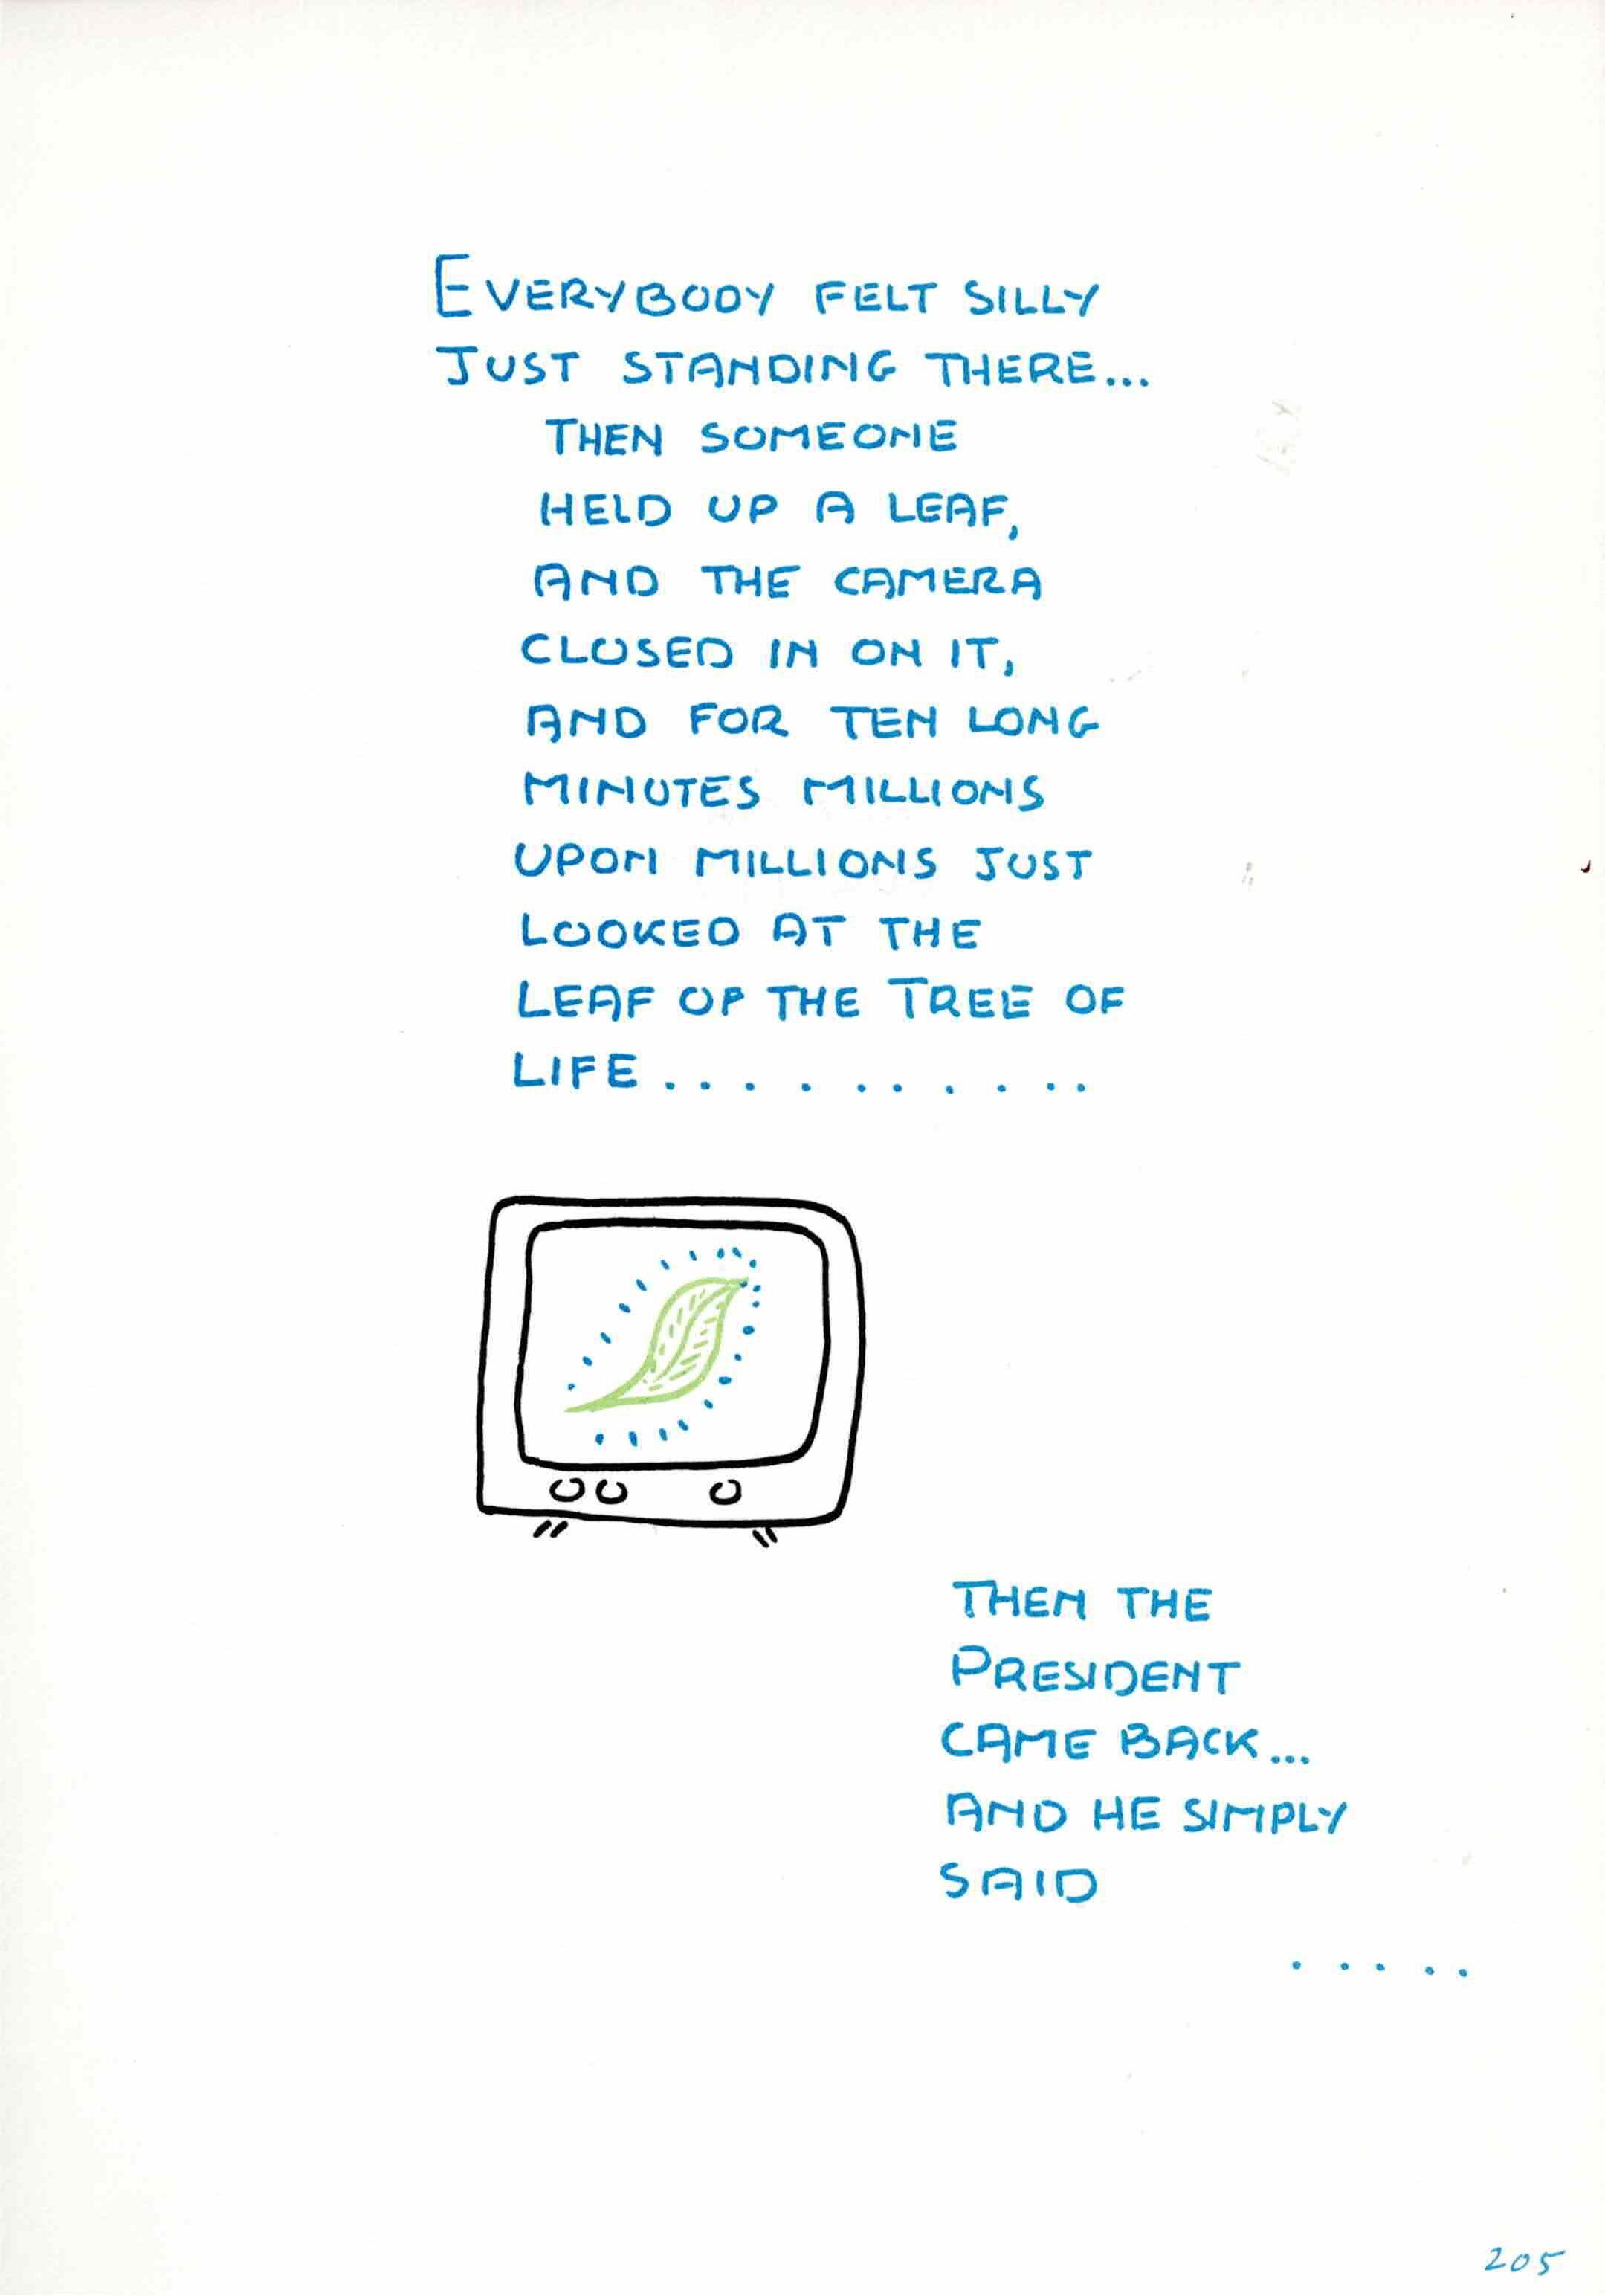 EVERYBODY FELT SILLY
JUST STANDING THERE...
THEN SOMEONE
HELD UP A LEAF,
AND THE CAMERA
CLOSED IN ON IT,
AND FOR TEN LONG
MINUTES MILLIONS
UPON MILLIONS JUST
LOOKED AT THE
LEAF OF THE TREE OF
LIFE..........
THEN THE
PRESIDENT
CAME BACK...
AND HE SIMPLY
SAID
.....
205